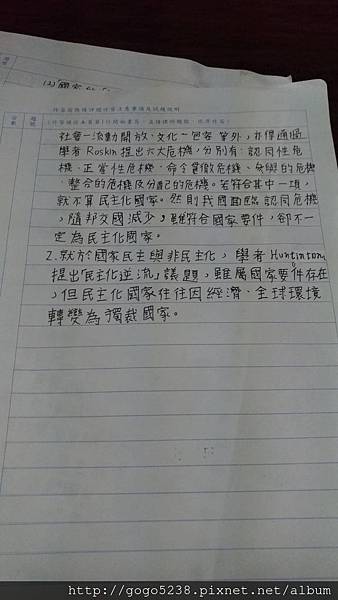 (2)國家
作答前務請詳閱作答注意事項及試題說明
社會－流動開放、文化－包容等外，亦得通過
學者Roskin提出六大危機，分別有:認同性危
機、正當性危機、命令貫徹危機、參與的危機
、整合的危機及分配的危機。若符合其中一項，
就不算民主化國家。然則我國面臨認同危機
，隨邦交國減少，雖符合國家要件，卻不一
定為民主化國家。
2.就於國家民主與非民主化，學者Huntinton
提出「民主化逆流」議題，雖屬國家要件存在
，但民主化國家往往因經濟、全球環境
轉變為獨裁國家。
http://gogo5238.pixnet.net/album